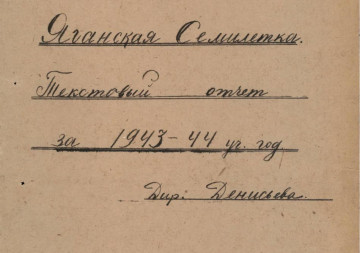 Яганская Семилетка.
Текстовый отчет
за 1943-44 уч. год
Дир: Денисьева